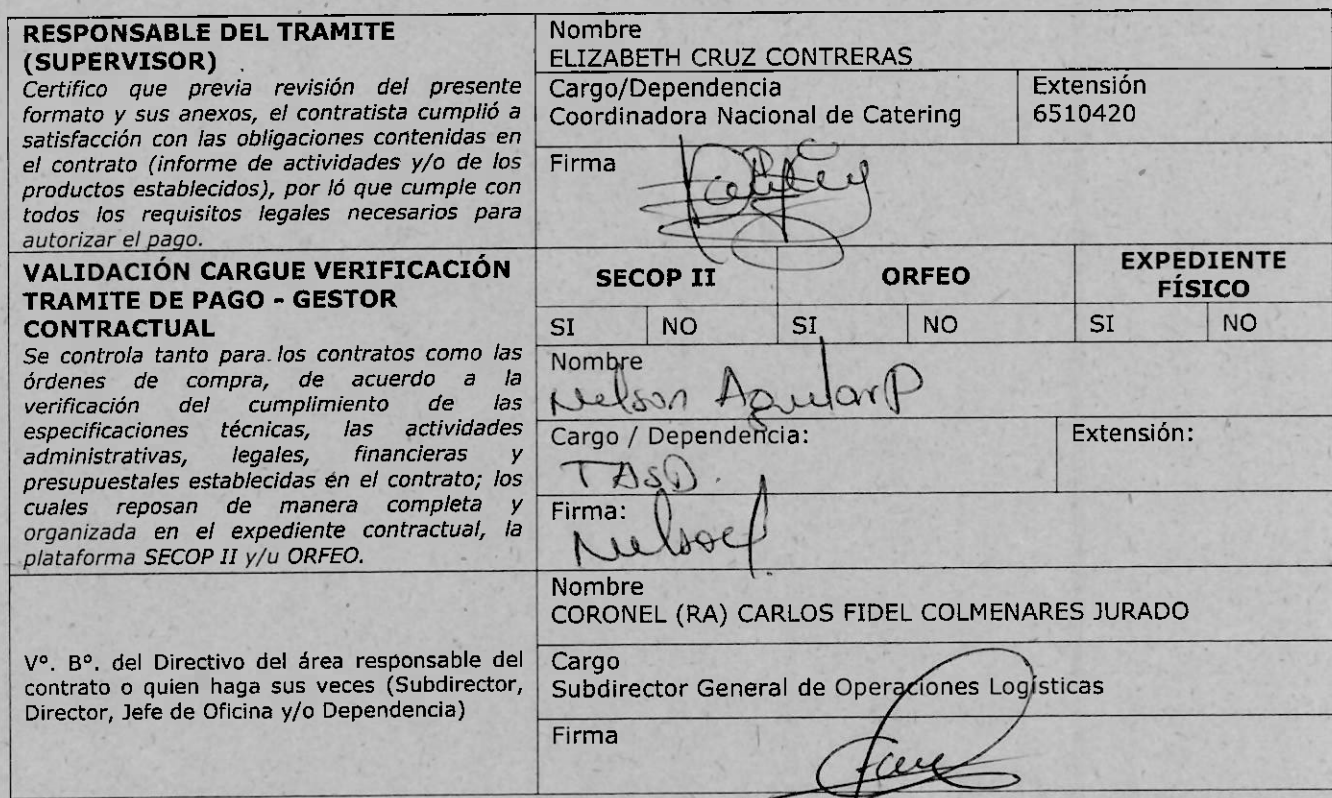 RESPONSABLE DEL TRAMITE
(SUPERVISOR)
Certifico que previa revisión del presente
formato y sus anexos, el contratista cumplió a
satisfacción con las obligaciones contenidas en
el contrato (informe de actividades y/o de los
productos establecidos), por ló que cumple con
todos los requisitos legales necesarios para
autorizar el pago.
Nombre
ELIZABETH CRUZ CONTRERAS
Cargo/Dependencia
Coordinadora Nacional de Catering
Extensión
6510420
Firma
VALIDACIÓN CARGUE VERIFICACIÓN
TRAMITE DE PAGO - GESTOR
CONTRACTUAL
Se controla tanto para los contratos como las
órdenes de compra, de acuerdo a la
verificación del cumplimiento de las
especificaciones técnicas, las actividades
administrativas, legales, financieras y
presupuestales establecidas en el contrato; los
cuales reposan de manera completa y
organizada en el expediente contractual, la
plataforma SECOP II y/u ORFEO.
SECOP II ORFEO EXPEDIENTE
FÍSICO
SI NO SI NO SI NO
Nombre
Nelson Aguilar P
Cargo / Dependencia:
TASD.
Extensión:
Firma:
Vº. Bº. del Directivo del área responsable del
contrato o quien haga sus veces (Subdirector,
Director, Jefe de Oficina y/o Dependencia)
Nombre
CORONEL (RA) CARLOS FIDEL COLMENARES JURADO
Cargo
Subdirector General de Operaciones Logísticas
Firma